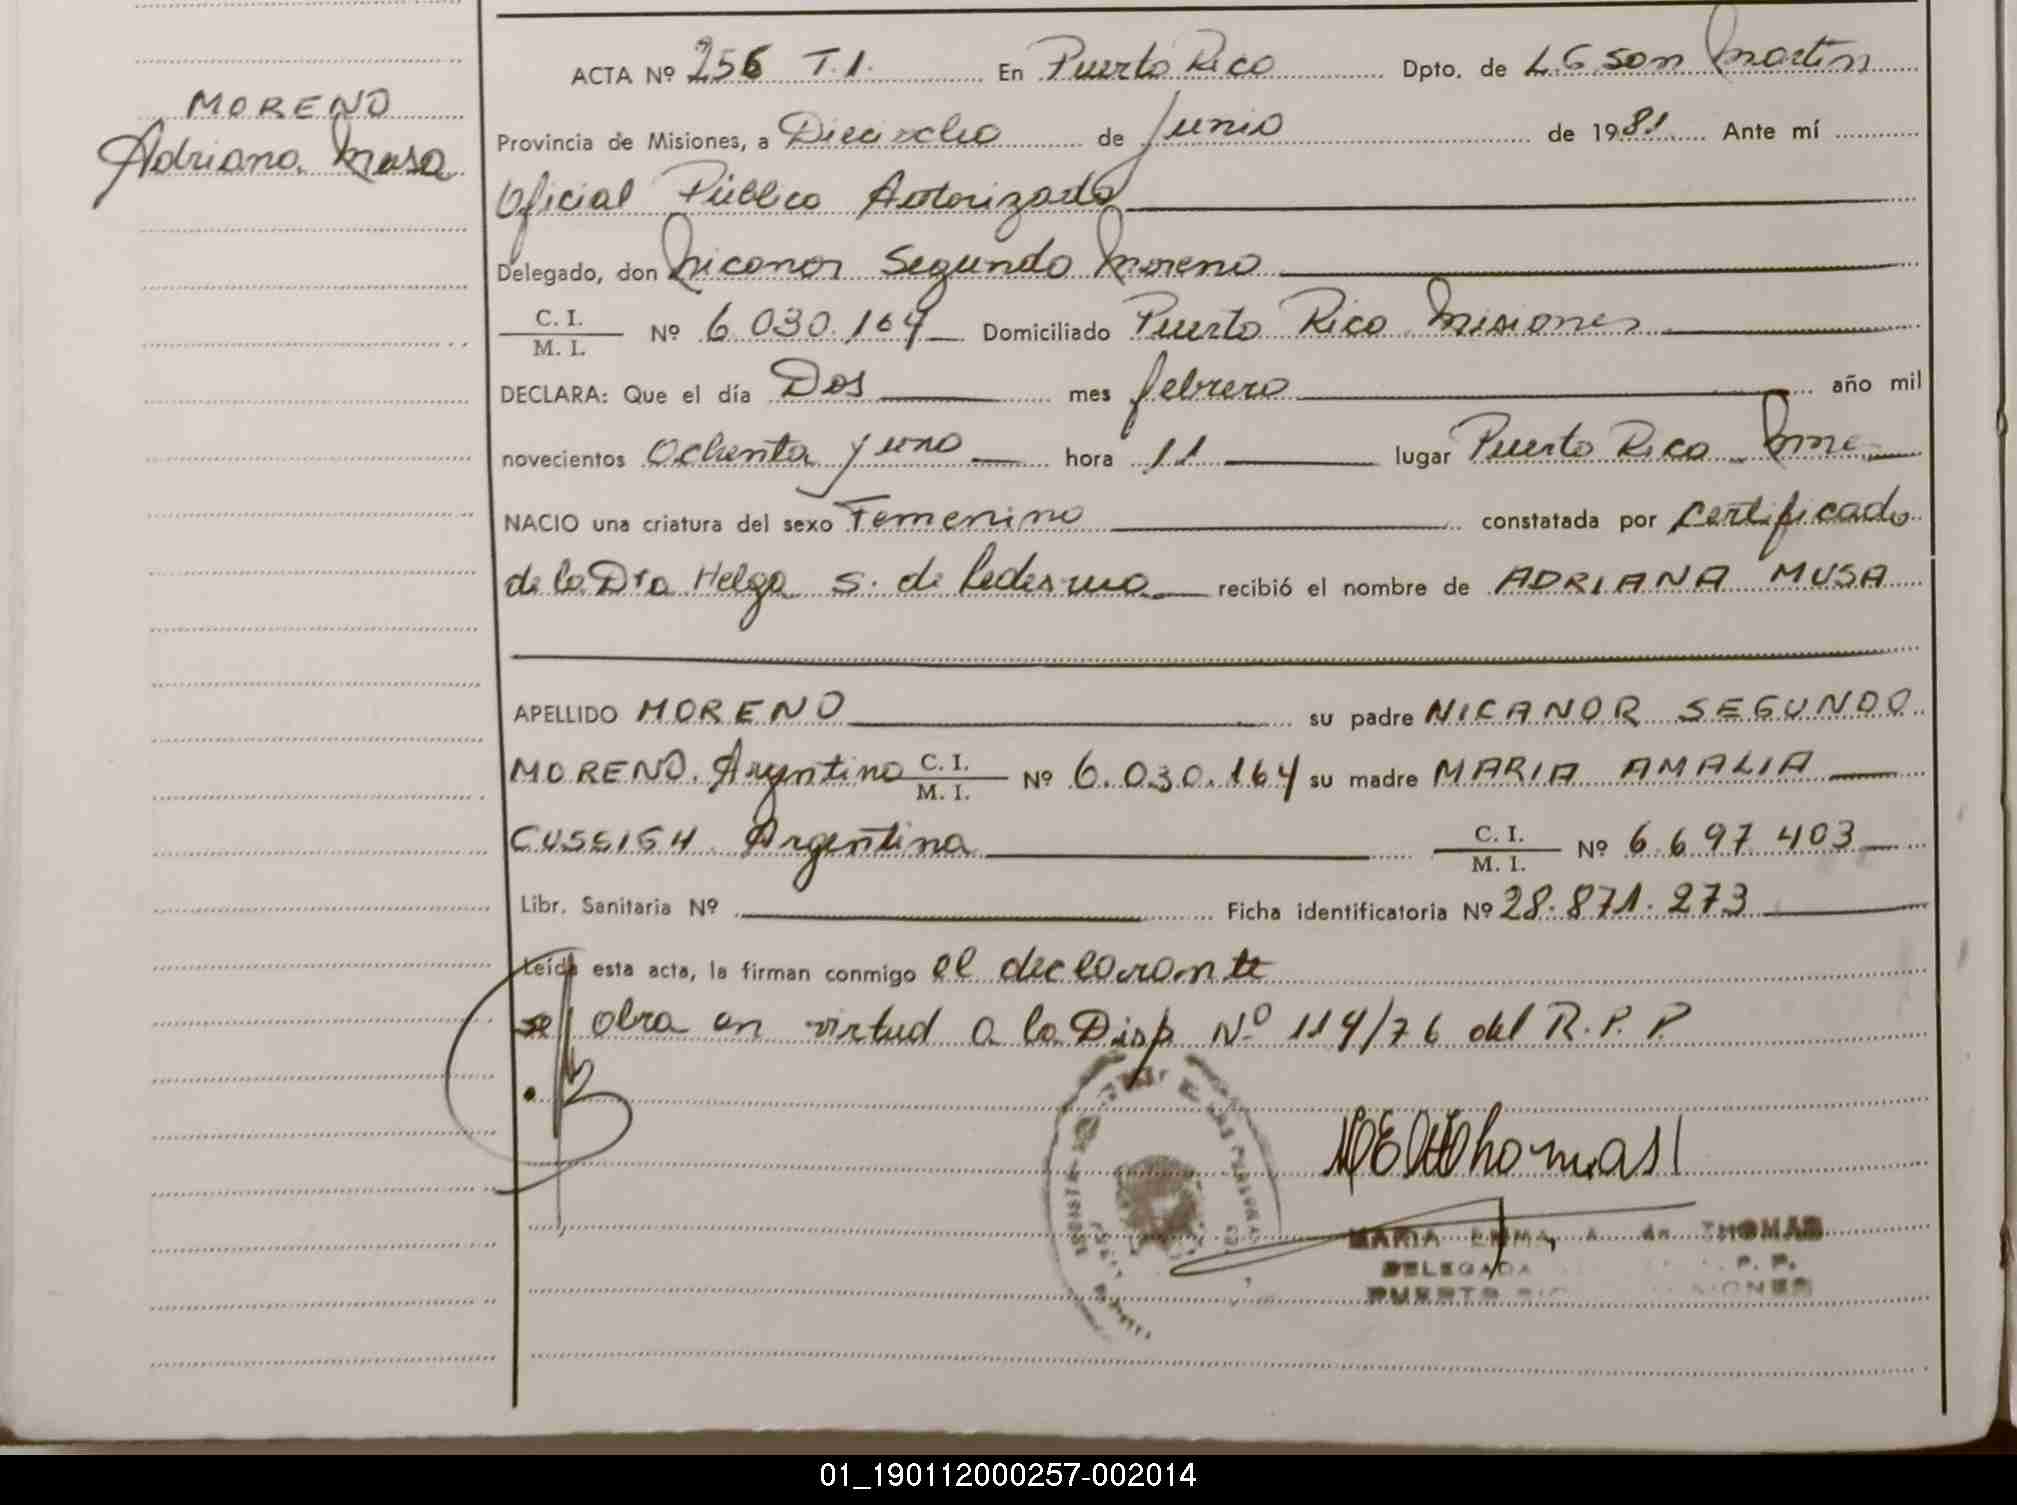 MORENO
Adriana Musa
ACTA Nº 256 T.1. En Puerto Rico Dpto. de L.G. San Martin
Provincia de Misiones, a Dieciocho de Junio de 1981. Ante mí
Oficial Público Autorizado
Delegado, don Nicanor Segundo Moreno
C. I.
M. I. Nº 6.030.164 Domiciliado Puerto Rico Misiones
DECLARA: Que el día Dos mes febrero año mil
novecientos Ochenta y uno hora 11 lugar Puerto Rico Mnes
NACIO una criatura del sexo Femenino constatada por Certificado
de la Dra Helga S. de Ledesma recibió el nombre de ADRIANA MUSA
APELLIDO MORENO su padre NICANOR SEGUNDO
MORENO. Argentino C. I.
M. I. Nº 6.030.164 su madre MARIA AMALIA
CUSEIGH Argentina C. I.
M. I. Nº 6.697.403
Libr. Sanitaria Nº Ficha identificatoria Nº 28.871.273
Leída esta acta, la firman conmigo el declarante
se obra en virtud a la Disp Nº 114/76 del R.P.P.
MARIA EMMA A. de THOMAS
DELEGADA P. P.
PUERTO RICO MISIONES
01_190112000257-002014